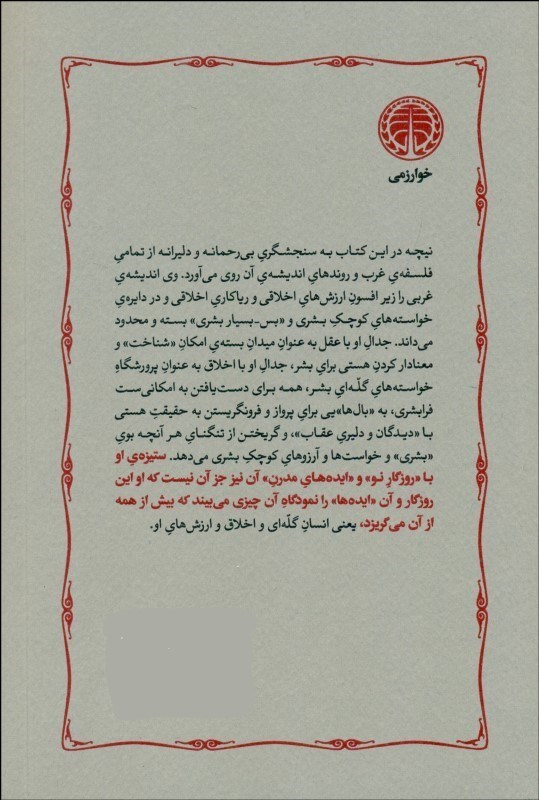 خوارزمی
نیچه در این کتاب به سنجشگریِ بی‌رحمانه و دلیرانه از تمامیِ
فلسفه‌یِ غرب و روندهایِ اندیشه‌یِ آن روی می‌آورد. وی اندیشه‌یِ
غربی را زیر افسونِ ارزش‌هایِ اخلاقی و ریاکاریِ اخلاقی و در دایره‌یِ
خواسته‌هایِ کوچکِ بشری و «بس-بسیار بشری» بسته و محدود
می‌داند. جدالِ او با عقل به عنوانِ میدانِ بسته‌یِ امکانِ «شناخت» و
معنادار کردنِ هستی برایِ بشر، جدالِ او با اخلاق به عنوانِ پرورشگاهِ
خواسته‌هایِ گلّه‌ایِ بشر، همه برای دست‌یافتن به امکانی‌ست
فرابشری، به «بال‌ها»یی برایِ پرواز و فرونگریستن به حقیقتِ هستی
با «دیدگان و دلیریِ عقاب»، و گریختن از تنگنایِ هر آنچه بویِ
«بشری» و خواست‌ها و آرزوهایِ کوچکِ بشری می‌دهد. ستیزه‌یِ او
با «روزگارِ نو» و «ایده‌هایِ مدرنِ» آن نیز جز آن نیست که او این
روزگار و آن «ایده‌ها» را نمودگاهِ آن چیزی می‌بیند که بیش از همه
از آن می‌گریزد، یعنی انسانِ گلّه‌ای و اخلاق و ارزش‌هایِ او.